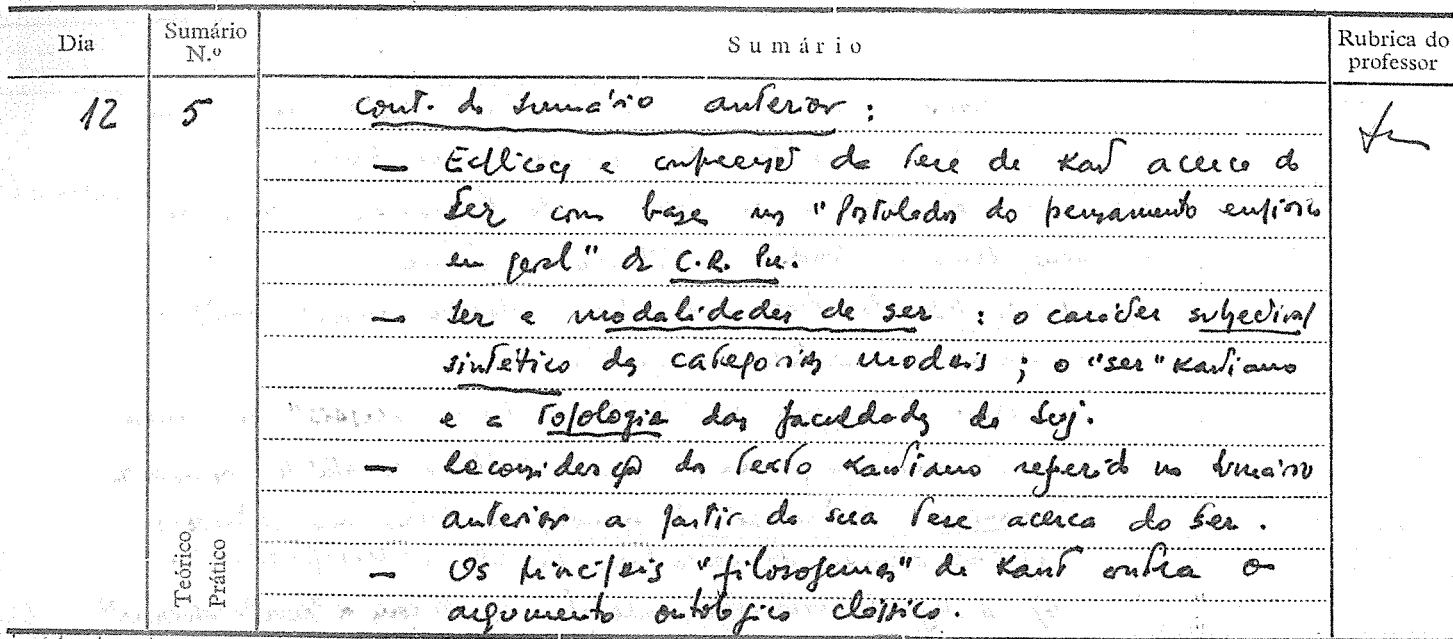 Dia
Sumário
N.º
Sumário
Rubrica do
professor
12
5
cont. do sumário anterior :
— Explicaç e compreensã da tese de Kant acerca do
Ser com base nos "Postulados do pensamento empírico
em geral" da C.R. Pu.
— Ser e modalidades de ser : o carácter subjectival
sintético das categorias modais ; o "ser" Kantiano
e a topologia das faculdades do Suj.
— Reconsideração do texto Kantiano referido no sumário
anterior a partir da sua tese acerca do Ser.
— Os principais "filosofemas" de Kant contra o
argumento ontológico clássico.
Teórico
Prático